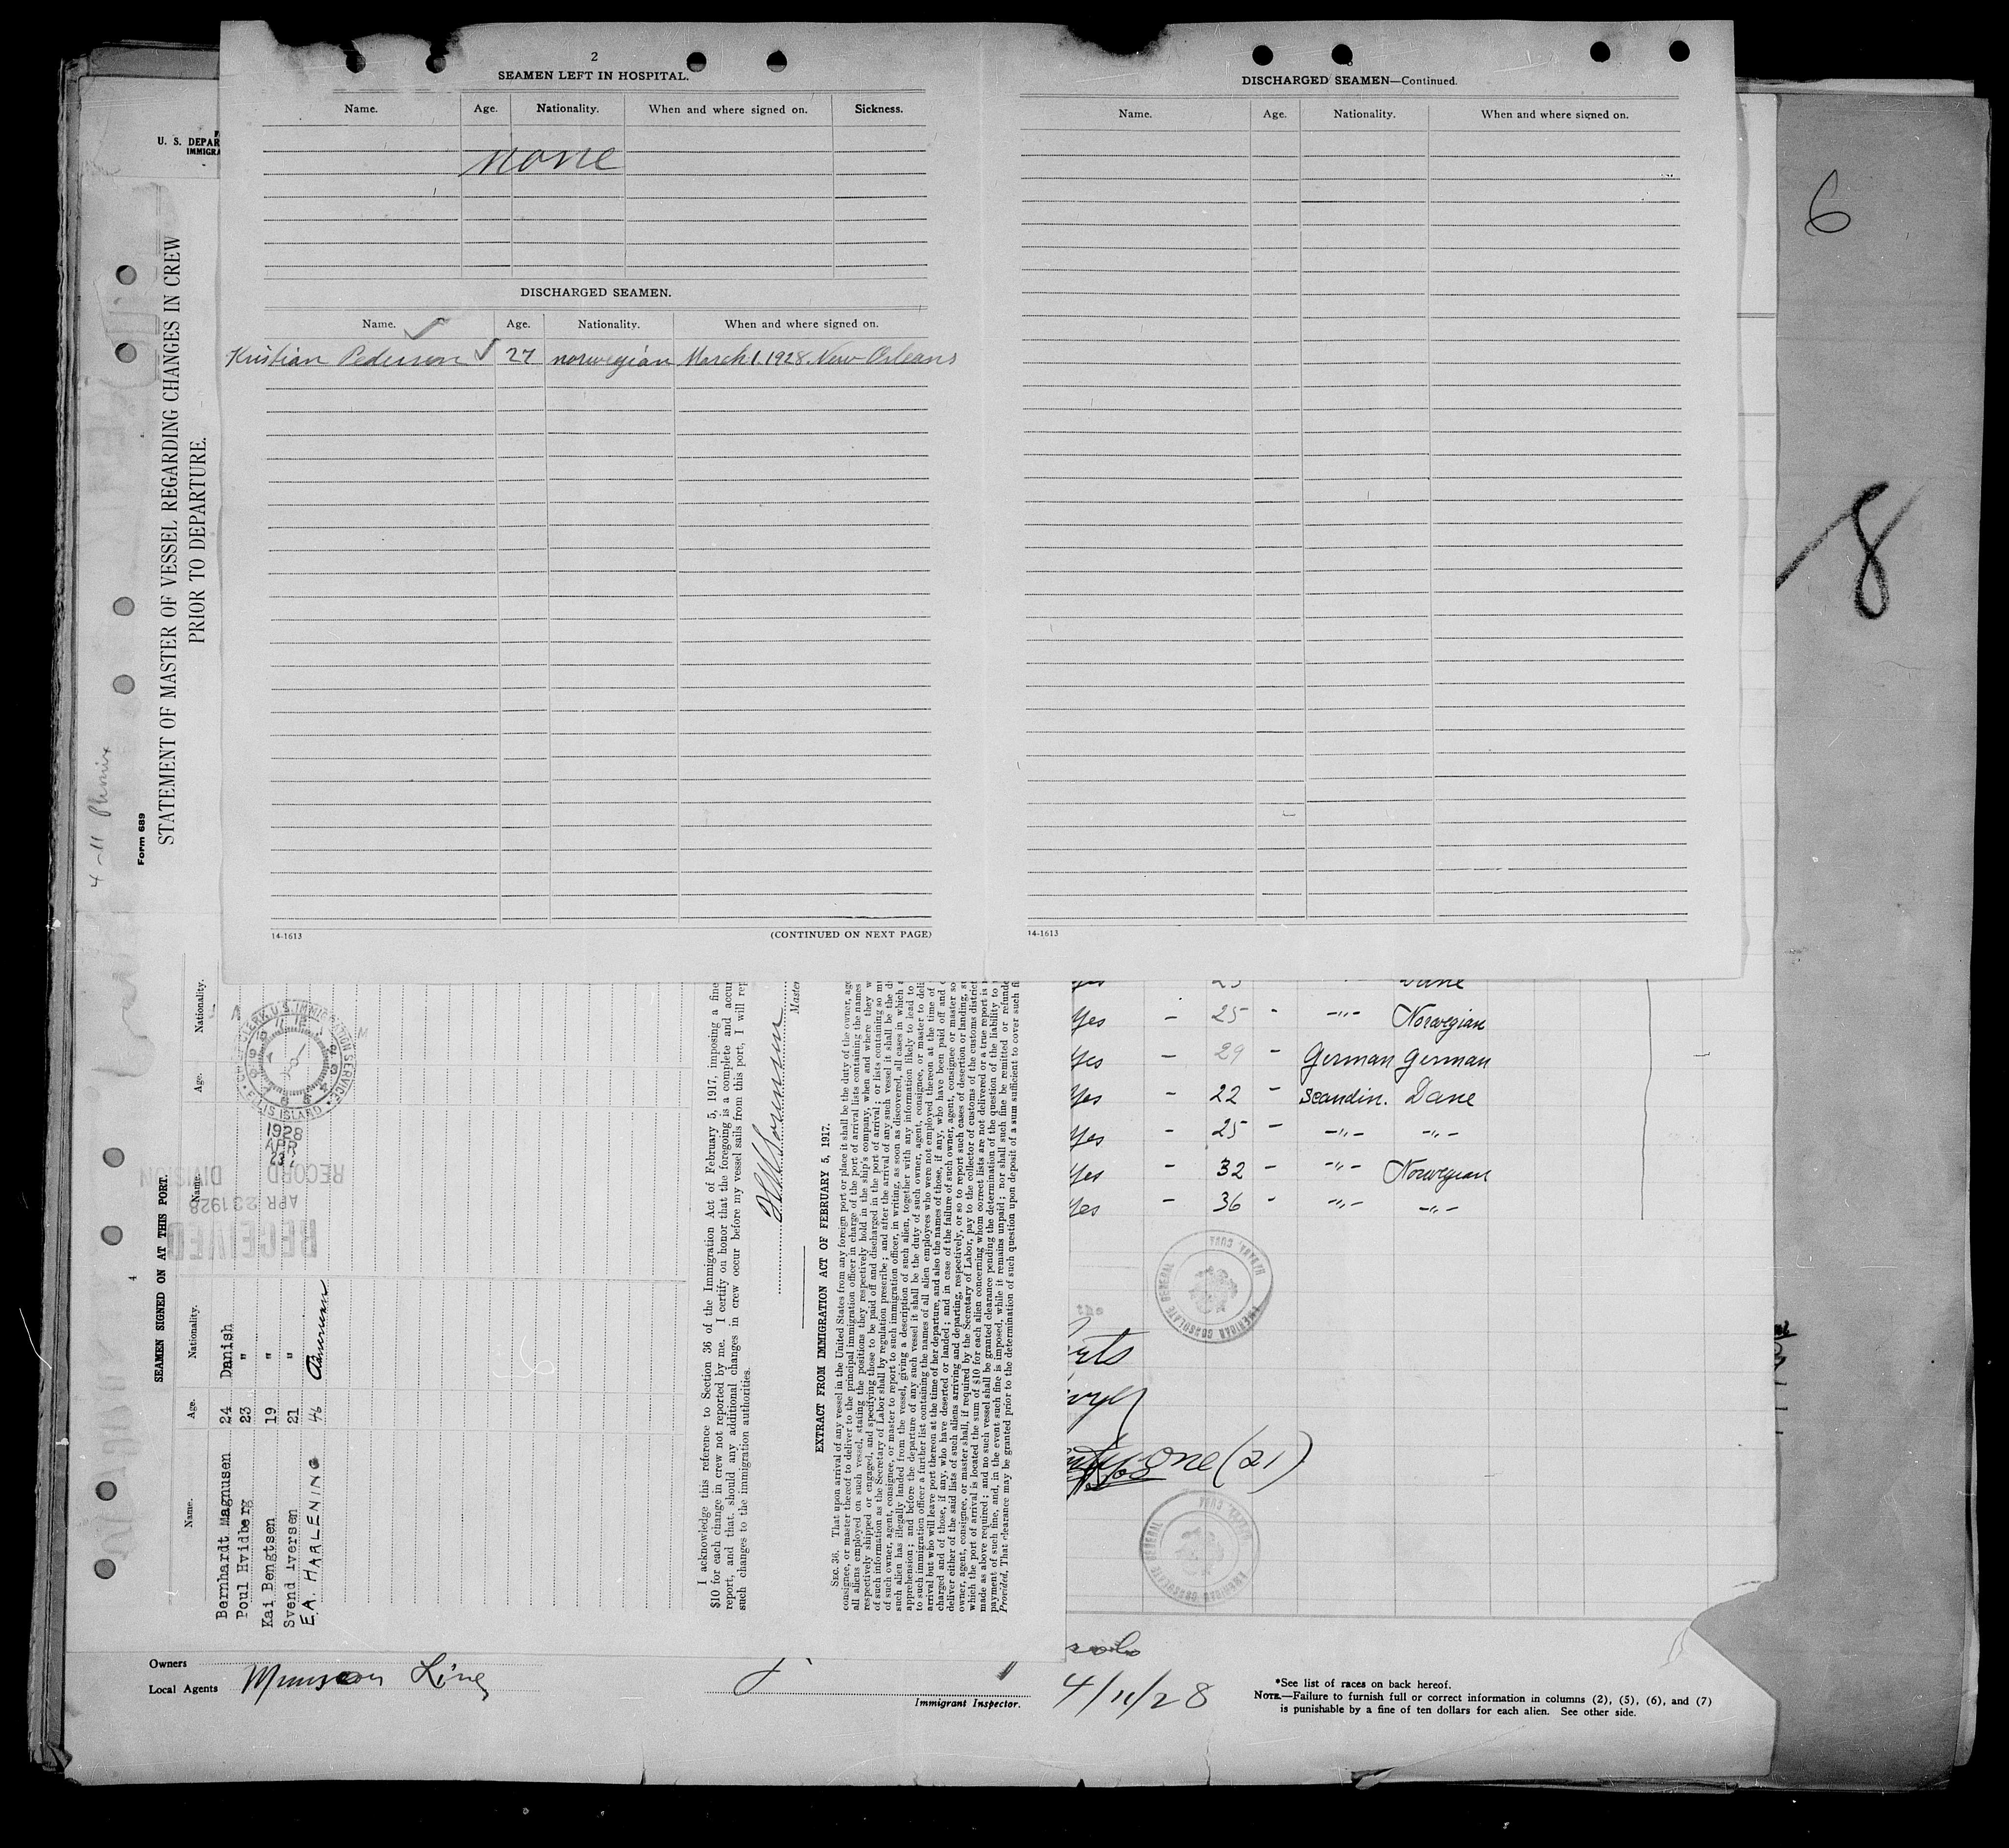 2
SEAMEN LEFT IN HOSPITAL.
Name. Age. Nationality. When and where signed on. Sickness.
none
DISCHARGED SEAMEN.
Name. Age. Nationality. When and where signed on.
Kristian Pedersen 27 norwegian March 1. 1928. New Orleans
14-1613 (CONTINUED ON NEXT PAGE)
DISCHARGED SEAMEN—Continued.
Name. Age. Nationality. When and where signed on.
14-1613
6
8
U. S. DEPAR
IMMIGRA
Form 689
STATEMENT OF MASTER OF VESSEL REGARDING CHANGES IN CREW
PRIOR TO DEPARTURE.
4-11
4
SEAMEN SIGNED ON AT THIS PORT.
Name. Age. Nationality. Name. Age. Nationality.
Bernhardt Magnusen 24 Danish
Poul Hvidberg 23 "
Kai Bengtsen 19 "
Svend Iversen 21 "
E.A. HARLENING 46
U.S. IMMIGRATION SERVICE
ELLIS ISLAND
1928
APR
23
RECORD DIVISION
APR 23 1928
RECEIVED
I acknowledge this reference to Section 36 of the Immigration Act of February 5, 1917, imposing a fine
$10 for each change in crew not reported by me. I certify on honor that the foregoing is a complete and accur
report, and that should any additional changes in crew occur before my vessel sails from this port, I will rep
such changes to the immigration authorities.
Master
EXTRACT FROM IMMIGRATION ACT OF FEBRUARY 5, 1917.
SEC. 36. That upon arrival of any vessel in the United States from any foreign port or place it shall be the duty of the owner, age
consignee, or master thereof to deliver to the principal immigration officer in charge of the port of arrival lists containing the names
all aliens employed on such vessel, stating the positions they respectively hold in the ship's company, when and where they w
respectively shipped or engaged, and specifying those to be paid off and discharged in the port of arrival; or lists containing so mu
of such information as the Secretary of Labor shall by regulation prescribe; and after the arrival of any such vessel it shall be the d
of such owner, agent, consignee, or master to report to such immigration officer, in writing, as soon as discovered, all cases in which a
such alien has illegally landed from the vessel, giving a description of such alien, together with any information likely to lead to
apprehension; and before the departure of any such vessel it shall be the duty of such owner, agent, consignee, or master to deli
to such immigration officer a further list containing the names of all alien employees who were not employed thereon at the time of
arrival but who will leave port thereon at the time of her departure, and also the names of those, if any, who have been paid off and d
charged and of those, if any, who have deserted or landed; and in case of the failure of such owner, agent, consignee or master so
deliver either of the said lists of such aliens arriving and departing, respectively, or so to report such cases of desertion or landing, s
owner, agent, consignee, or master shall, if required by the Secretary of Labor, pay to the collector of customs of the customs district
which the port of arrival is located the sum of $10 for each alien concerning whom correct lists are not delivered or a true report is
made as above required; and no such vessel shall be granted clearance pending the determination of the question of the liability to
payment of such fine, and, in the event such fine is imposed, while it remains unpaid; nor shall such fine be remitted or refunde
Provided, That clearance may be granted prior to the determination of such question upon deposit of a sum sufficient to cover such fi
yes 25 Dane
yes - 25 - -"- Norwegian
yes - 29 - German German
yes - 22 - Scandin. Dane
yes - 25 - -"- -"-
yes - 32 - -"- Norwegian
yes - 36 - -"- -"-
AMERICAN CONSULATE GENERAL HABANA, CUBA
the
one (21)
AMERICAN CONSULATE GENERAL HABANA, CUBA
Owners
Local Agents Munson Line
Immigrant Inspector.
4/11/28
*See list of races on back hereof.
NOTE.—Failure to furnish full or correct information in columns (2), (5), (6), and (7)
is punishable by a fine of ten dollars for each alien. See other side.